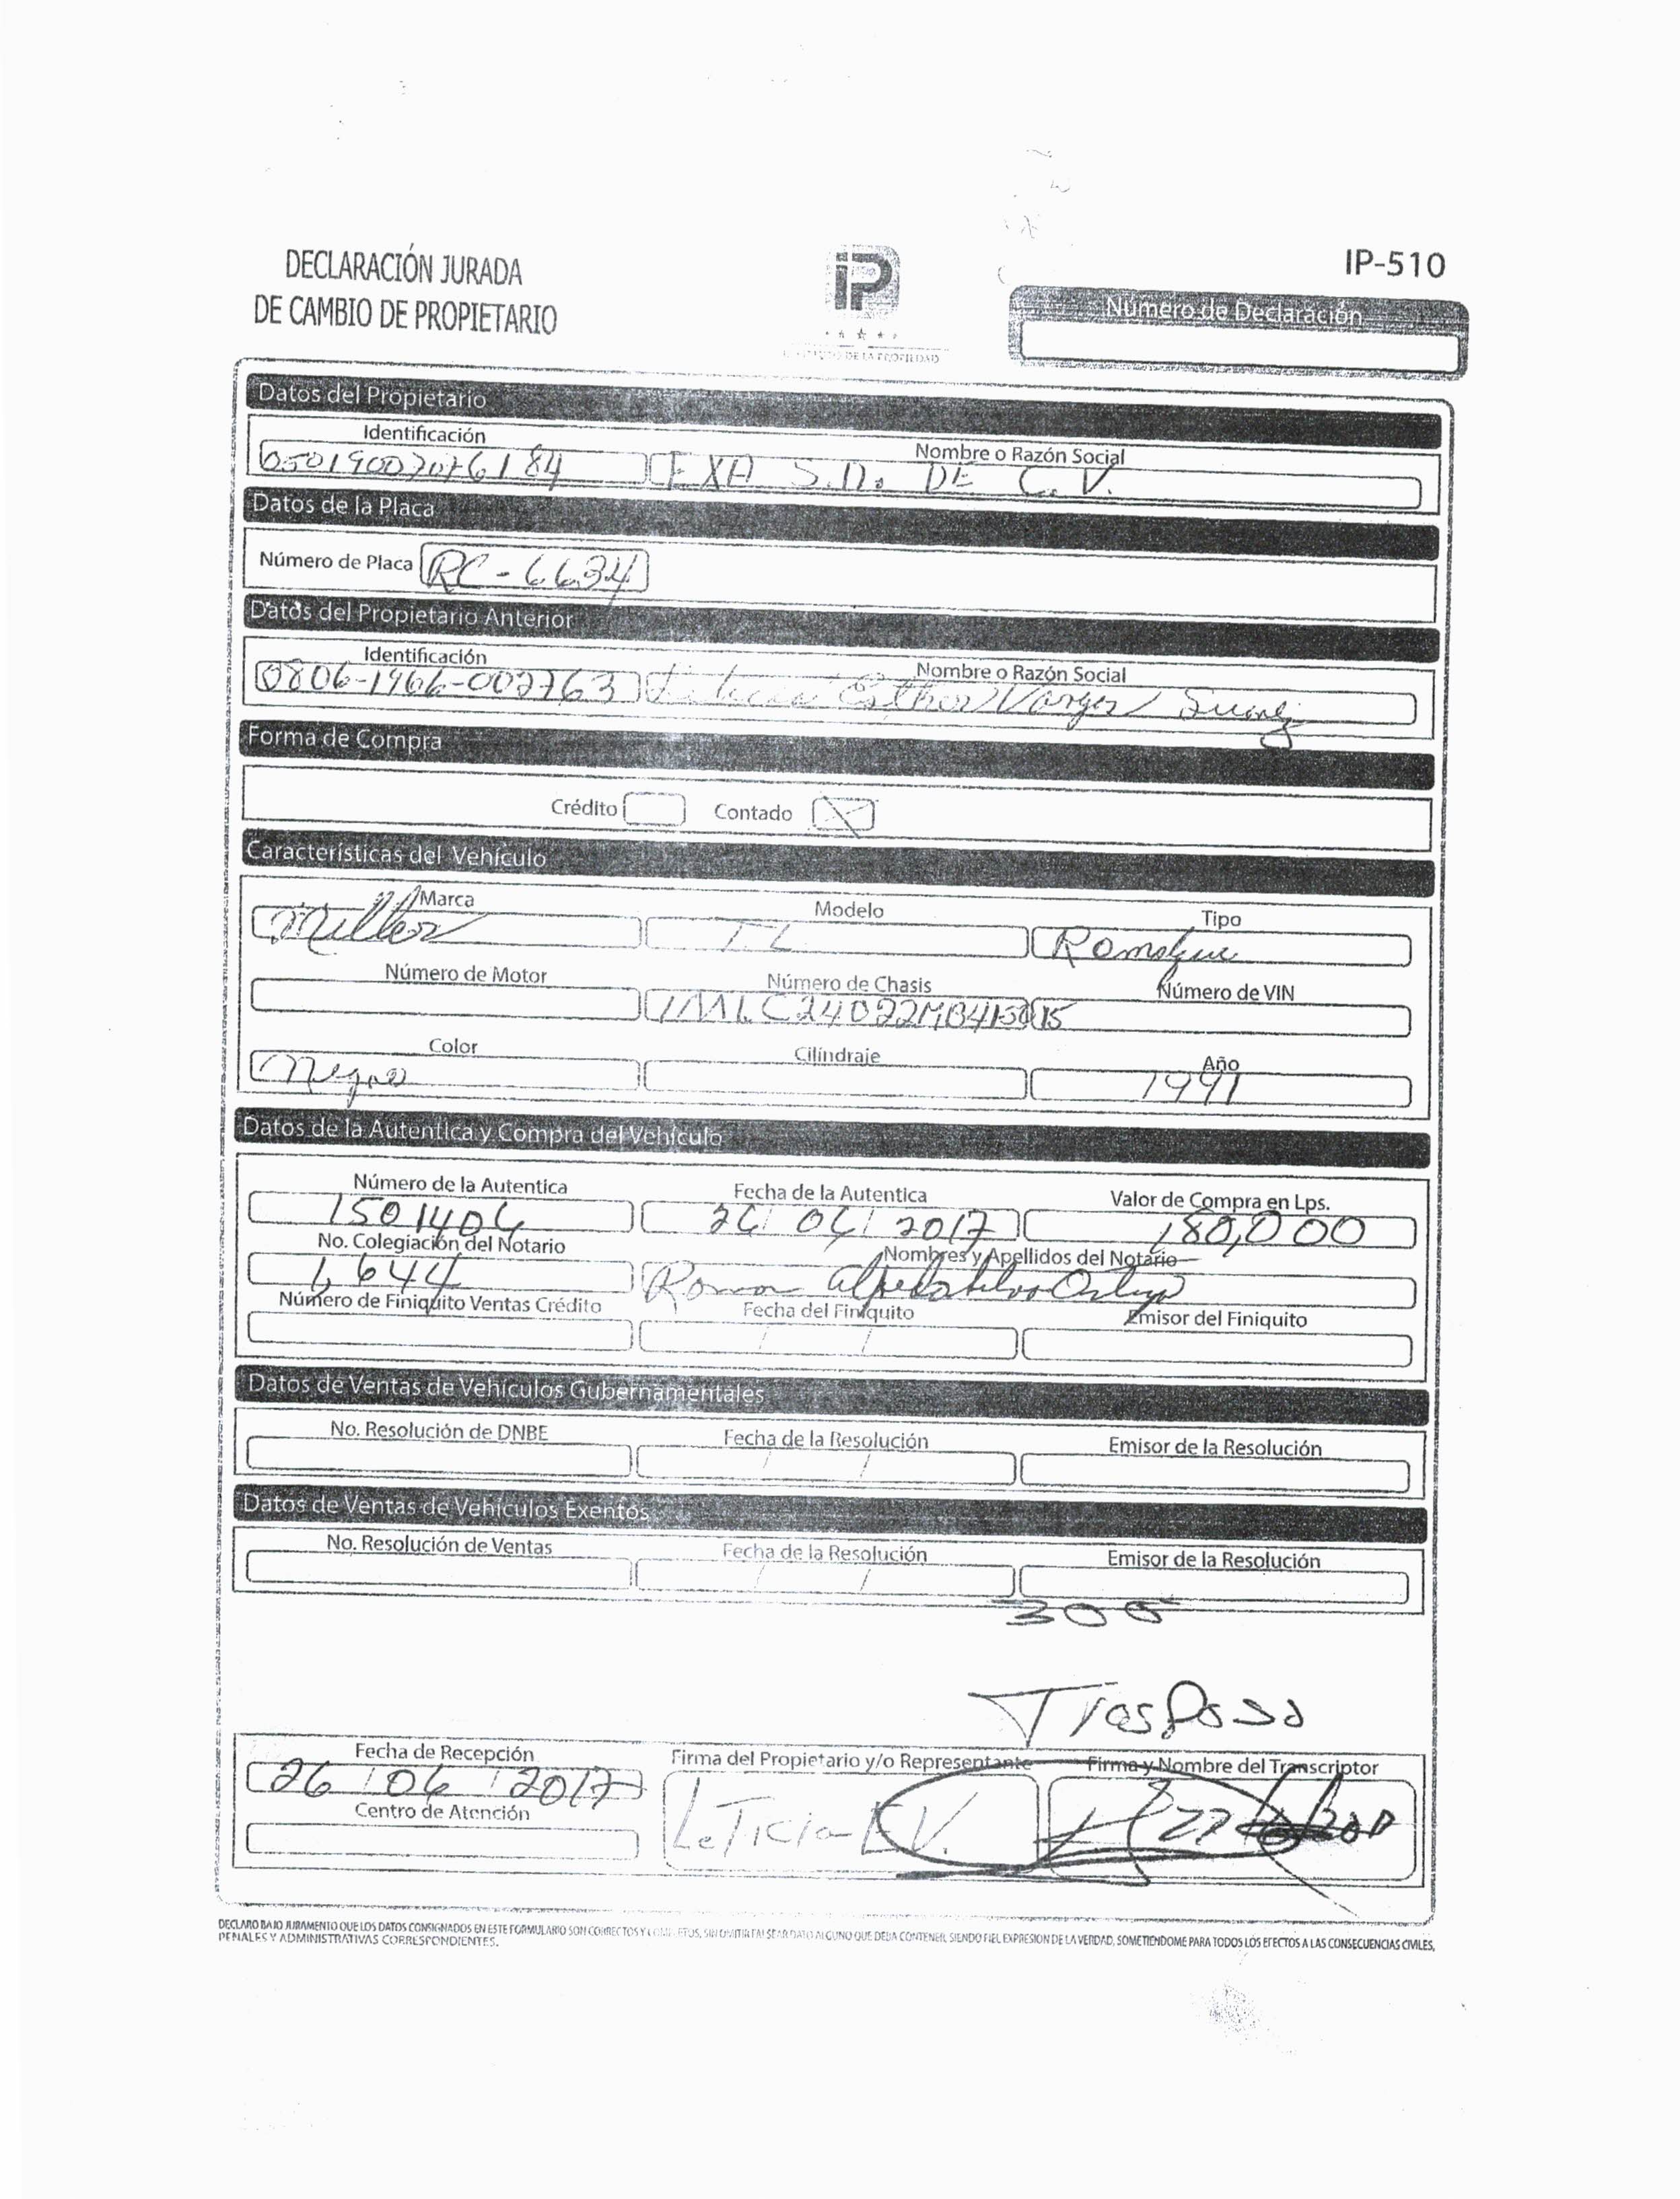 DECLARACIÓN JURADA
DE CAMBIO DE PROPIETARIO
iP
INSTITUTO DE LA PROPIEDAD
IP-510
Número de Declaración
Datos del Propietario
Identificación Nombre o Razón Social
EXA S.A. DE C.V.
Datos de la Placa
Número de Placa RC-6634
Datos del Propietario Anterior
Identificación Nombre o Razón Social
Esther Vargas
Forma de Compra
Crédito Contado
Características del Vehículo
Marca Modelo Tipo
Miller TL
Número de Motor Número de Chasis Número de VIN
Color Cilíndraje Año
Negro 1991
Datos de la Autentica y Compra del Vehículo
Número de la Autentica Fecha de la Autentica Valor de Compra en Lps.
180,000
No. Colegiación del Notario Nombres y Apellidos del Notario
1,644
Número de Finiquito Ventas Crédito Fecha del Finiquito Emisor del Finiquito
/ /
Datos de Ventas de Vehículos Gubernamentales
No. Resolución de DNBE Fecha de la Resolución Emisor de la Resolución
/ /
Datos de Ventas de Vehículos Exentos
No. Resolución de Ventas Fecha de la Resolución Emisor de la Resolución
/ /
Fecha de Recepción Firma del Propietario y/o Representante Firma y Nombre del Transcriptor
LeTicia E V.
Centro de Atención
DECLARO BAJO JURAMENTO QUE LOS DATOS CONSIGNADOS EN ESTE FORMULARIO SON CORRECTOS Y COMPLETOS, SIN OMITIR FALSEAR DATO ALGUNO QUE DEBA CONTENER, SIENDO FIEL EXPRESION DE LA VERDAD, SOMETIENDOME PARA TODOS LOS EFECTOS A LAS CONSECUENCIAS CIVILES,
PENALES Y ADMINISTRATIVAS CORRESPONDIENTES.